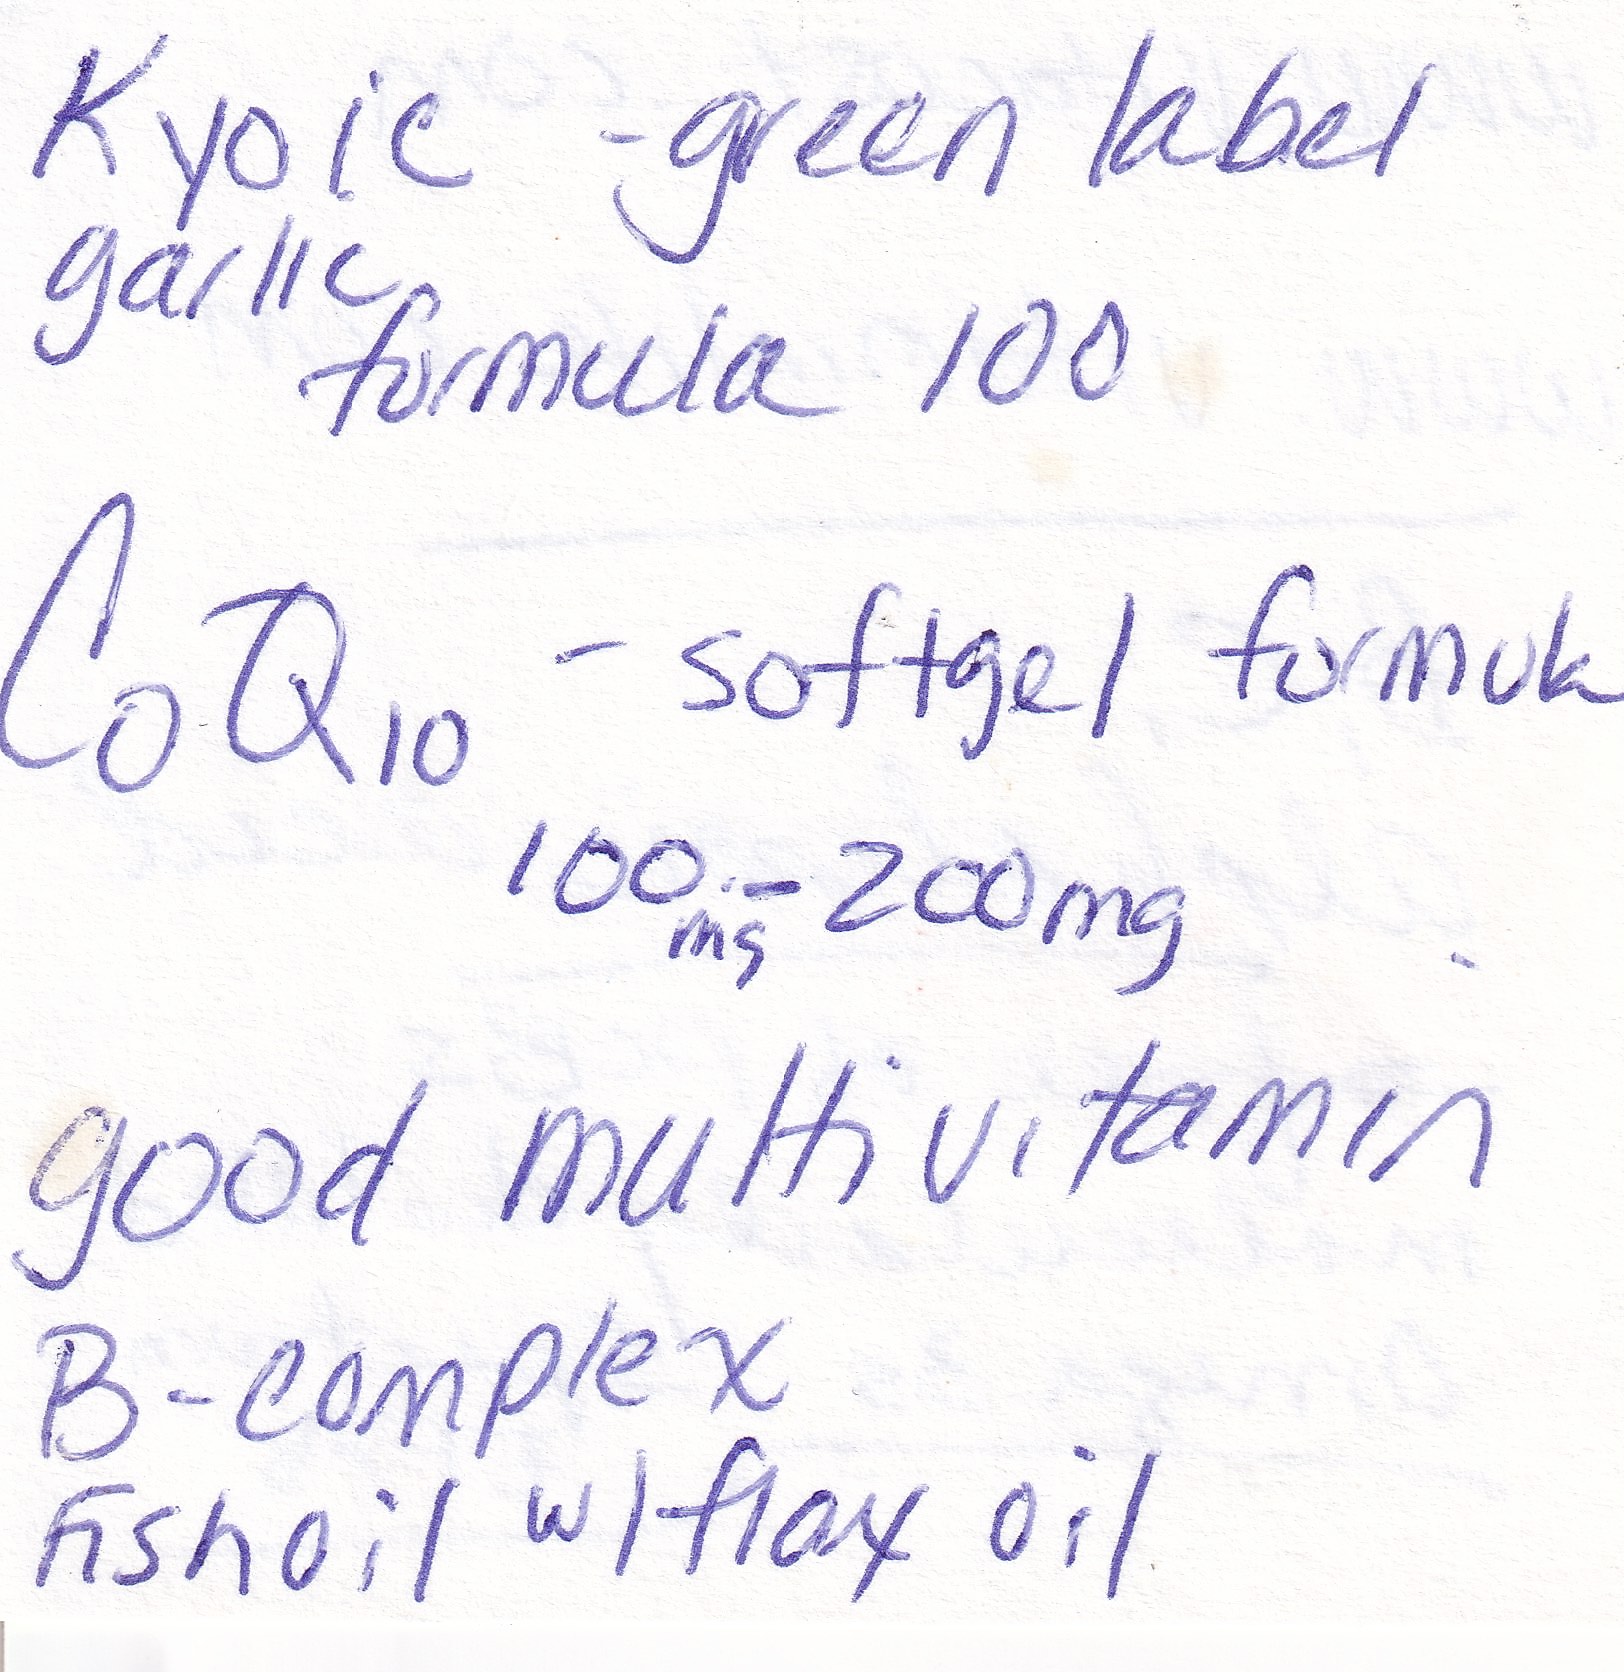 Kyoic - green label
garlic
formula 100
CoQ10 - softgel formula
100mg - 200mg
good multivitamin
B-complex
Fish oil w/flax oil